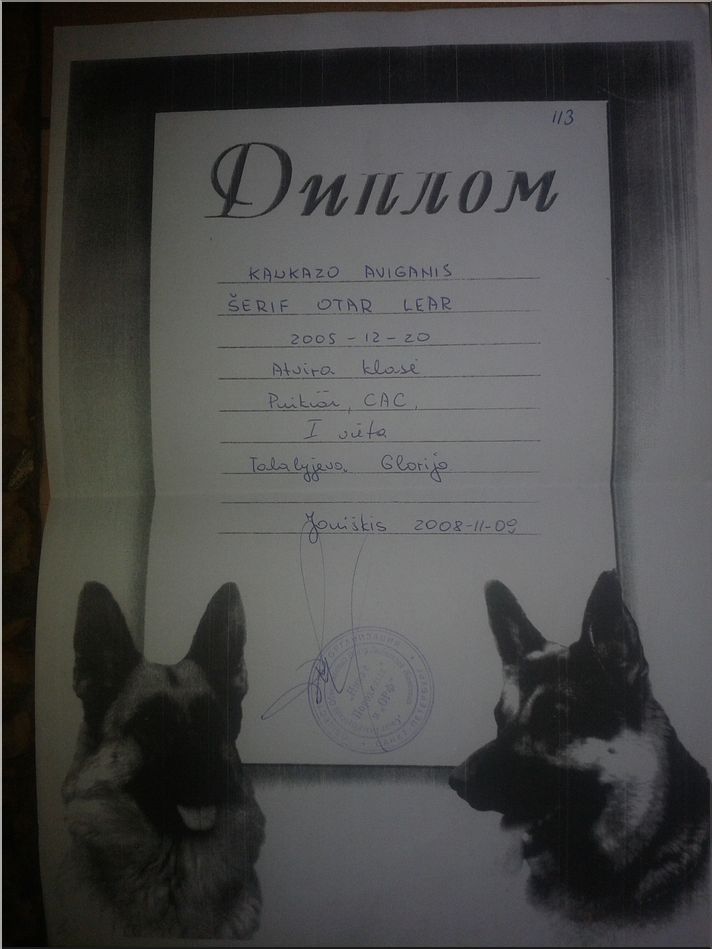 113
Диплом
KAUKAZO AVIGANIS
ŠERIF OTAR LEAR
2005-12-20
Atvira klasė
Puikiai, CAC,
I vieta
Talalyjeva Glorija
Joniškis 2008-11-09
ОРГАНИЗАЦИЯ
САНКТ-ПЕТЕРБУРГ